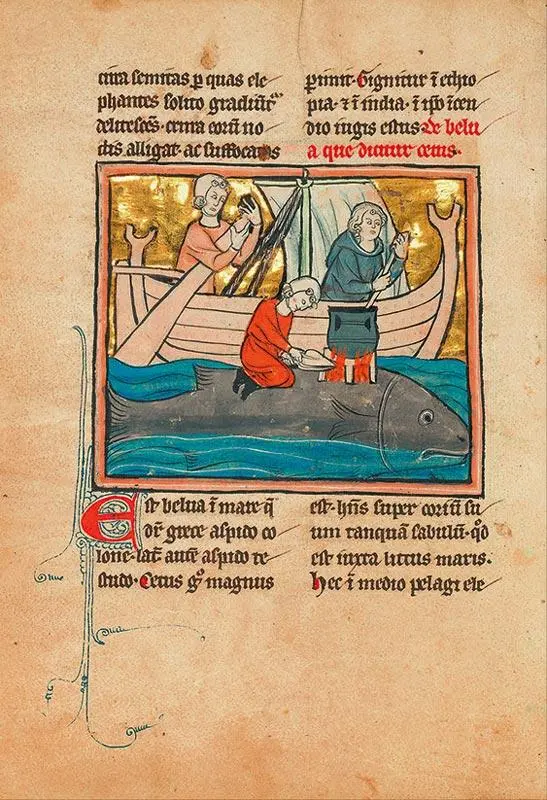 circa semitas p quas ele
phantes solito gradiūt᷑
delitescēs. crura eorū no
dis alligat. ac suffocatos
perimit. Gignitur ī ethio
pia. ⁊ ī india. ī ip̄o īcen
dio iugis estus. De belu
a que dicitur cetus.
Est belua ī mare q̄
dr̄ grece aspido co
lone. lat̄ aut̄ aspido te
studo. Cetus gͦ magnus
est. hn̄s super coriū su
um tanquā sabulū. qd̓
est iuxta littus maris.
hec ī medio pelagi ele